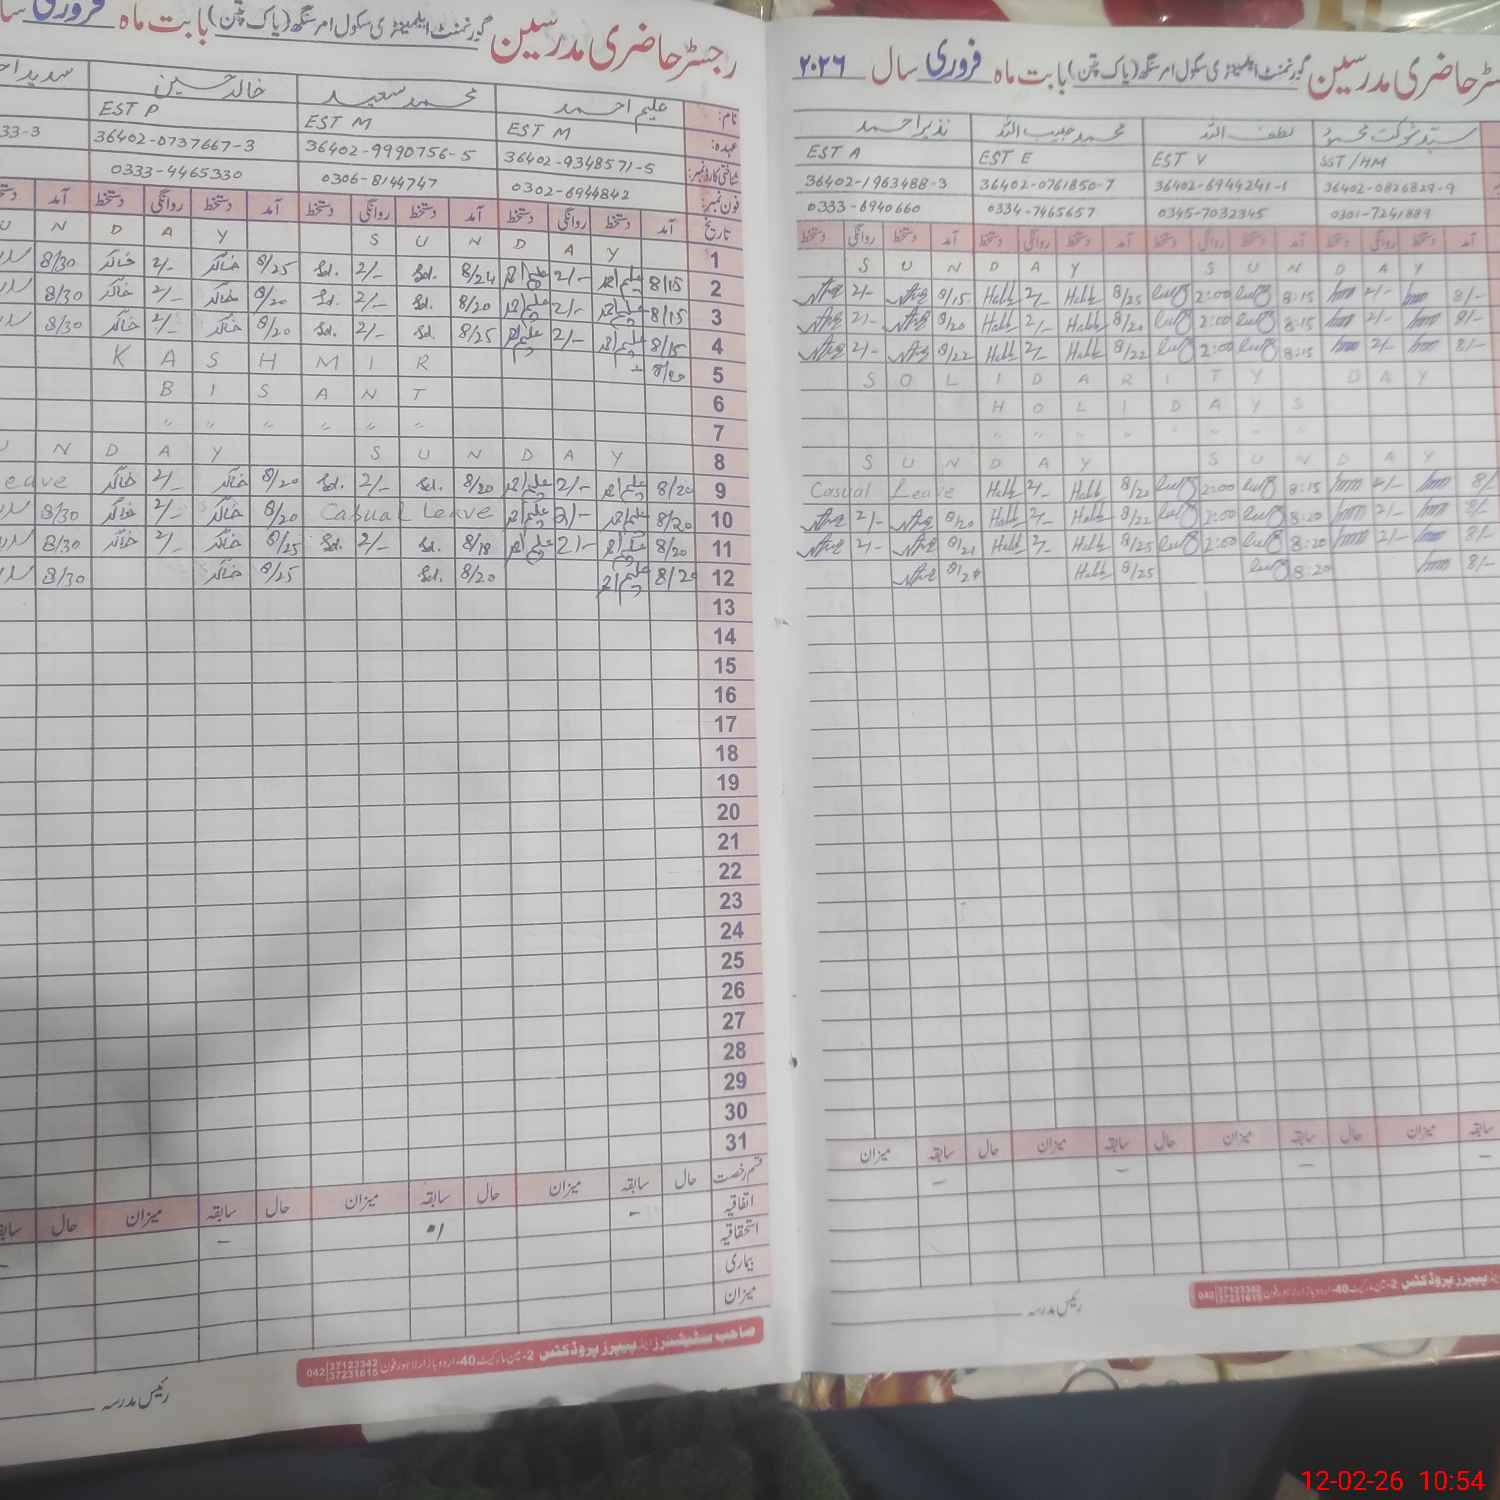 رجسٹر حاضری مدرسین گورنمنٹ ایلیمنٹری سکول امر سنگھ (پاک پتن) بابت ماہ فروری سال ۲۰۲۶
سید شوکت محمود لطف اللہ محمد حبیب اللہ نذیر احمد
EST A EST E EST V SST/HM
36402-1963488-3 36402-0761850-7 36402-6944241-1 36402-0826829-9
0333-6940660 0334-7465657 0345-7032345 0301-7241889
آمد دستخط روانگی دستخط آمد دستخط روانگی دستخط آمد دستخط روانگی دستخط آمد دستخط روانگی دستخط
S U N D A Y S U N D A Y
2/- 8/15 Habb 2/- Habb 8/25 2:00 8:15 2/- 8/-
2/- 8/20 Habb 2/- Habb 8/20 2:00 8:15 2/- 8/-
2/- 8/22 Habb 2/- Habb 8/22 2:00 8:15 2/- 8/-
S O L I D A R I T Y D A Y
H O L I D A Y S
" " " " " " "
S U N D A Y S U N D A Y
Casual Leave Habb 2/- Habb 8/20 2:00 8:15 2/- 8/-
2/- 8/20 Habb 2/- Habb 8/22 2:00 8:20 2/- 8/-
2/- 8/21 Habb 2/- Habb 8/25 2:00 8:20 2/- 8/-
Habb 8/25 8:20 8/-
سابقہ میزان حال سابقہ میزان حال سابقہ میزان حال سابقہ میزان
رئیس مدرسہ
پیپرز پروڈکٹس 2- 40- 042 37123342 37231615
رجسٹر حاضری مدرسین گورنمنٹ ایلیمنٹری سکول امر سنگھ (پاک پتن) بابت ماہ فروری
نام: علیم احمد محمد سعید خالد حسین
عہدہ: EST M EST M EST P
شناختی کارڈ نمبر: 36402-9348571-5 36402-9990756-5 36402-0737667-3 33-3
فون نمبر: 0302-6944842 0306-8144747 0333-4465330
تاریخ آمد دستخط روانگی دستخط آمد دستخط روانگی دستخط آمد دستخط روانگی دستخط آمد
U N D A Y S U N D A Y 1
8/30 خالد 2/- خالد 8/25 Sd. 2/- Sd. 8/24 علیم احمد 2/- علیم احمد 8/15 2
8/30 خالد 2/- خالد 8/20 Sd. 2/- Sd. 8/20 علیم احمد 2/- علیم احمد 8/15 3
8/30 خالد 2/- خالد 8/20 Sd. 2/- Sd 8/25 علیم احمد 2/- علیم احمد 8/15 4
K A S H M I R 8/20 5
B I S A N T 6
" " " " " " 7
U N D A Y S U N D A Y 8
eave خالد 2/- خالد 8/20 Sd. 2/- Sd. 8/20 علیم احمد 2/- علیم احمد 8/20 9
8/30 خالد 2/- خالد 8/20 Casual Leave علیم احمد 2/- علیم احمد 8/20 10
8/30 خالد 2/- خالد 8/25 Sd. 2/- Sd. 8/18 علیم احمد 2/- علیم احمد 8/20 11
8/30 خالد 8/25 Sd. 8/20 علیم احمد 8/20 12
13
14
15
16
17
18
19
20
21
22
23
24
25
26
27
28
29
30
31
قسم رخصت حال سابقہ میزان حال سابقہ میزان حال سابقہ میزان حال
اتفاقیہ
استحقاقیہ
بیماری
میزان
صاحب سٹیشنرز اینڈ پیپرز پروڈکٹس 2- 40-اردو بازار لاہور فون 042 37123342 37231615
رئیس مدرسہ
12-02-26 10:54